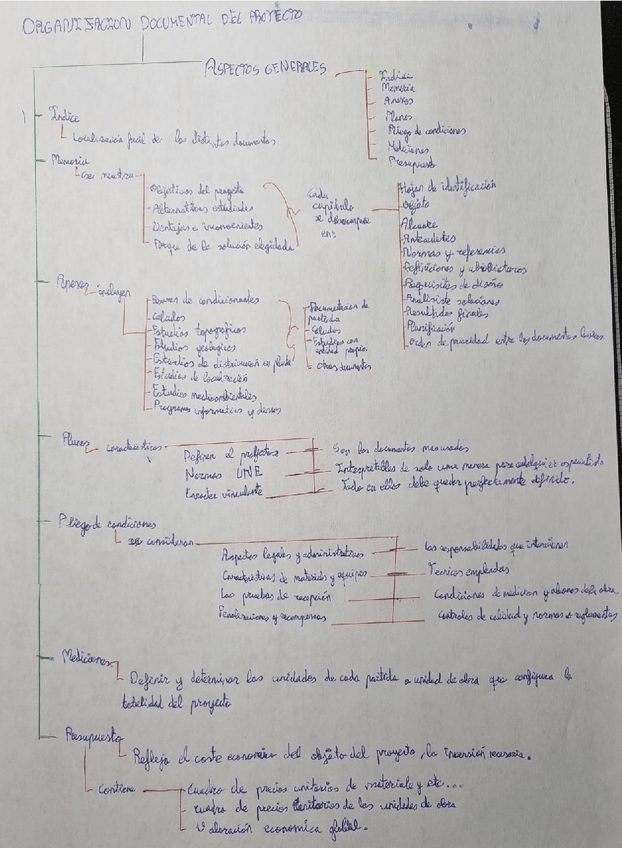 ORGANIZACION DOCUMENTAL DEL PROYECTO
ASPECTOS GENERALES
Indice
Memoria
Anexos
Planos
Pliego de condiciones
Mediciones
Presupuesto
Indice
Localización facil de los distintos documentos
Memoria
Objetivos del proyecto
Alternativas estudiadas
Ventajas e inconvenientes
Porque de la solución elegida
Cada
capitulo
se descompone
en:
Hojas de identificación
Objeto
Alcance
Antecedentes
Normas y referencias
Definiciones y abreviaturas
Requisitos de diseño
Analisis de soluciones
Resultados finales
Planificación
Orden de prioridad entre los documentos
Anexos
incluyen
de condicionales
Calculos
Estudios topograficos
Estudios geologicos
Estudios de distribución en planta
Estudios de localización
Estudios medioambientales
Programas informaticos y
Documentacion de
partida
Calculos
Estudios con
entidad propia
otros documentos
Planos
caracteristicas
Definen el proyecto
Normas UNE
Caracter vinculante
Son los documentos mas usados
Interpretables de solo una manera para cualquier especialista
Todo en ellos debe quedar perfectamente definido.
Pliego de condiciones
se consideran
Aspectos legales y administrativos
Caracteristicas de materiales y equipos
Las pruebas de recepción
Penalizaciones y recompensas
Las responsabilidades que intervienen
Tecnicas empleadas
Condiciones de medicion y abonos de la obra
Controles de calidad y normas o reglamentos
Mediciones
Definir y determinar las unidades de cada partida o unidad de obra que configura la
totalidad del proyecto
Presupuesto
Refleja el coste economico del objeto del proyecto, la inversión necesaria.
Contiene
Cuadro de precios unitarios de materiales y etc...
cuadro de precios unitarios de las unidades de obra
Valoración economica global.